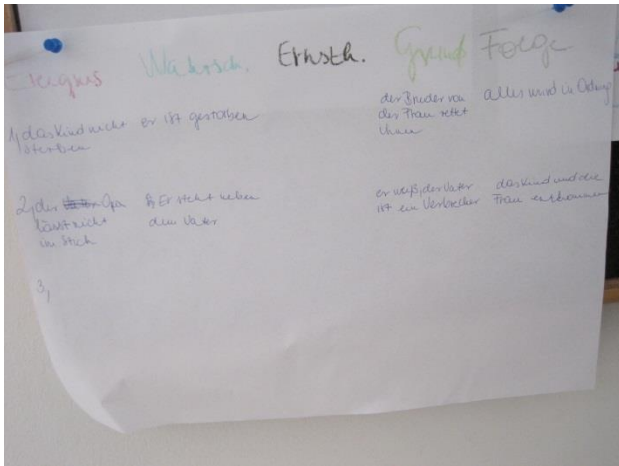 Ereignis Wahrsch. Ernsth. Grund Folge
1, das Kind nicht
sterben
er ist gestorben
der Bruder von
der Frau rettet
ihnen
alles wird in Ordnung
2, der Opa
lässt nicht
im Stich
Er steht neben
dem Vater
er weiß, der Vater
ist ein Verbrecher
das Kind und die
Frau entkommen
3,